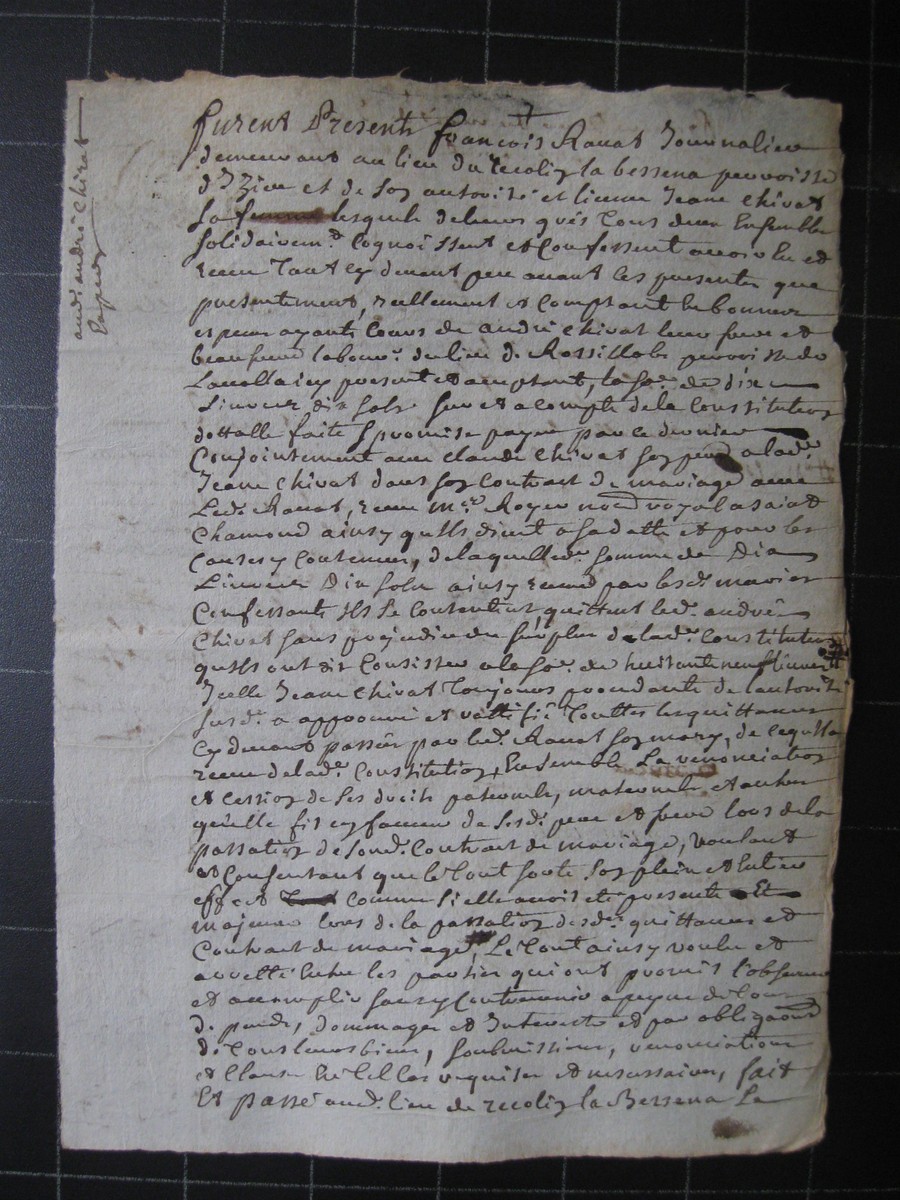 audi andré Chirat
furent Présents françois Ravat Journalier
demeurant au lieu du recolin la bessena parroisse
d'Izieu et de son autorité et licence Jeane Chirat
sa femme lesquels de leurs grés tous deux Ensemble
solidairemt. Cognoissent et Confessent avoir eu et
receu tant cy devant que avant les presentes que
presentement, reellement et Comptant En bonnes
et ayants Cours de andré Chirat leur frere et
beaufrere labourr. du lieu de parroisse de
present et acceptant, la so.e de dix
Livres dix sols sur et a compte de la Constitution
dottalle faite & promise payer par ce dernier
Conjointement avec claude Chirat son pere a lad.e
Jeane Chirat dans son Contrat de mariage avec
led. Ravat, receu Me. Royer no.re royal a saint
Chamond ainsy qu'ils disent a sa datte et pour les
Causes y Contenues, de laquelle somme de Dix
Livres Dix sols ainsy receue par lesd. mariés
Confessants ils se Contentent quittent led. andré
Chirat sans prejudice du surplus de lad.e Constitution
qu'ils ont dit Consister a la so.e de huitante neuf livres et
Icelle Jeane Chirat toujours procedante de l'autorité
susd.e a approuvé et rattiffié touttes les quittances
Cy devant passées par led. Ravat son mary, de ce qu'il a
receu de lad.e Constitution, Ensemble La renonciation
et cession de ses droits paternels, maternels et autres
qu'elle fit en faveur de sesd. pere et frere lors de la
passation de sond. Contrat de mariage, voulant
et Consentant que le tout sorte son plein et Entier
effet comme si elle avoit eté presente Et
majeure lors de la passation desd.es quittances et
Contrat de mariage, Le tout ainsy voulu et
arretté Entre les parties qui ont promis l'observer
et accomplir sans y Contrevenir a peyne de tous
depends, dommages et Interests et par obligaon
de tous leurs biens, soubmissions, renonciations
et Clauses En telles requises et necessaires, fait
Et passé aud. lieu de recolin la Bessena La